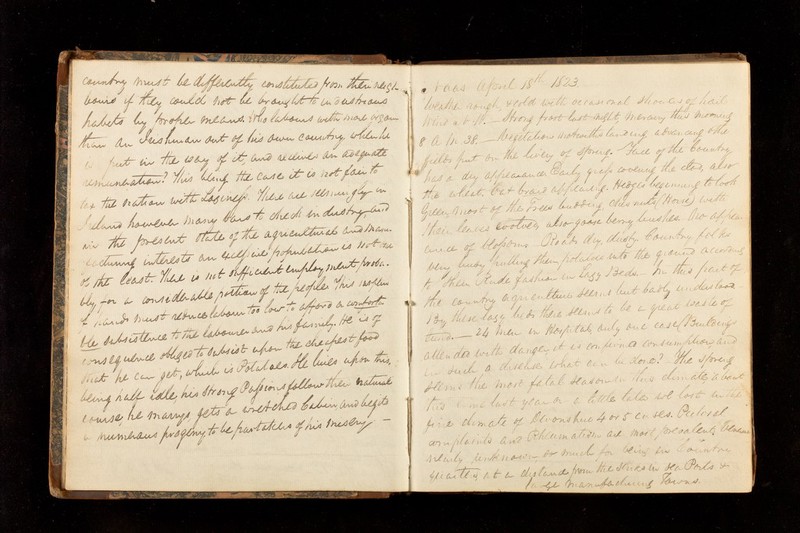 country must be differently constituted from their neigh-
bours if they could not be brought to industrious
habits by proper means. Who labours with more
than an Irishman out of his own country when he
is put in the way of it, and receives an adequate
remuneration? This being the case it is not fair to
tax the nation with Laziness. There are seemingly in
Ireland however many bars to check industry and
in the present state of the agricultural and manu-
facturing interests an excessive population is not one
of the least. There is not sufficient employment proba-
bly for a considerable portion of the people. This
of hands must reduce labour too low to afford a comforta-
ble subsistence to the labourer and his family. He is of
consequence obliged to subsist upon the cheapest food
that he can get, which is Potatoes. He lives upon this,
being half idle, his strong Passions follow their natural
course, he marrys gets a wretched Cabin, and begets
a numerous progeny to be partakers of his misery —
Naas April 18th 1823.
Weather rough & cold with occasional showers of hail
Wind — Strong frost last night Mercury this morning
8 A.M. 38. — Vegetation notwithstanding advancing & the
fields put on the livery of spring. Face of the Country
has a dry appearance Early grass covering the also
the wheat. Oat braird appearing. Hedges beginning to look
green, most of the Trees budding chesnuts (Horse) with
their leaves evolved, also goose berry bushes. No appear-
ance of blossoms. Roads dry, dusty. Country folks
very busy putting their potatoes into the ground according
to their rude fashion in Lazy Beds. In this part of
the country agriculture seems but badly understood
By these lazy beds there seems to be a great waste of
— 24 men in Hospital, only one case (Bunting's)
attended with danger, it is confirmed consumption, and
in such a disease what can be done? The spring
seems the most fatal season in this climate, about
this time last year or a little later we lost in the
fine climate of Devonshire 4 or 5 cases. Pectoral
complaints and Rheumatism are most prevalent,
nearly unknown so much for being in Country
quarters at a distance from the Stews in sea Ports &
large Manufacturing Towns.